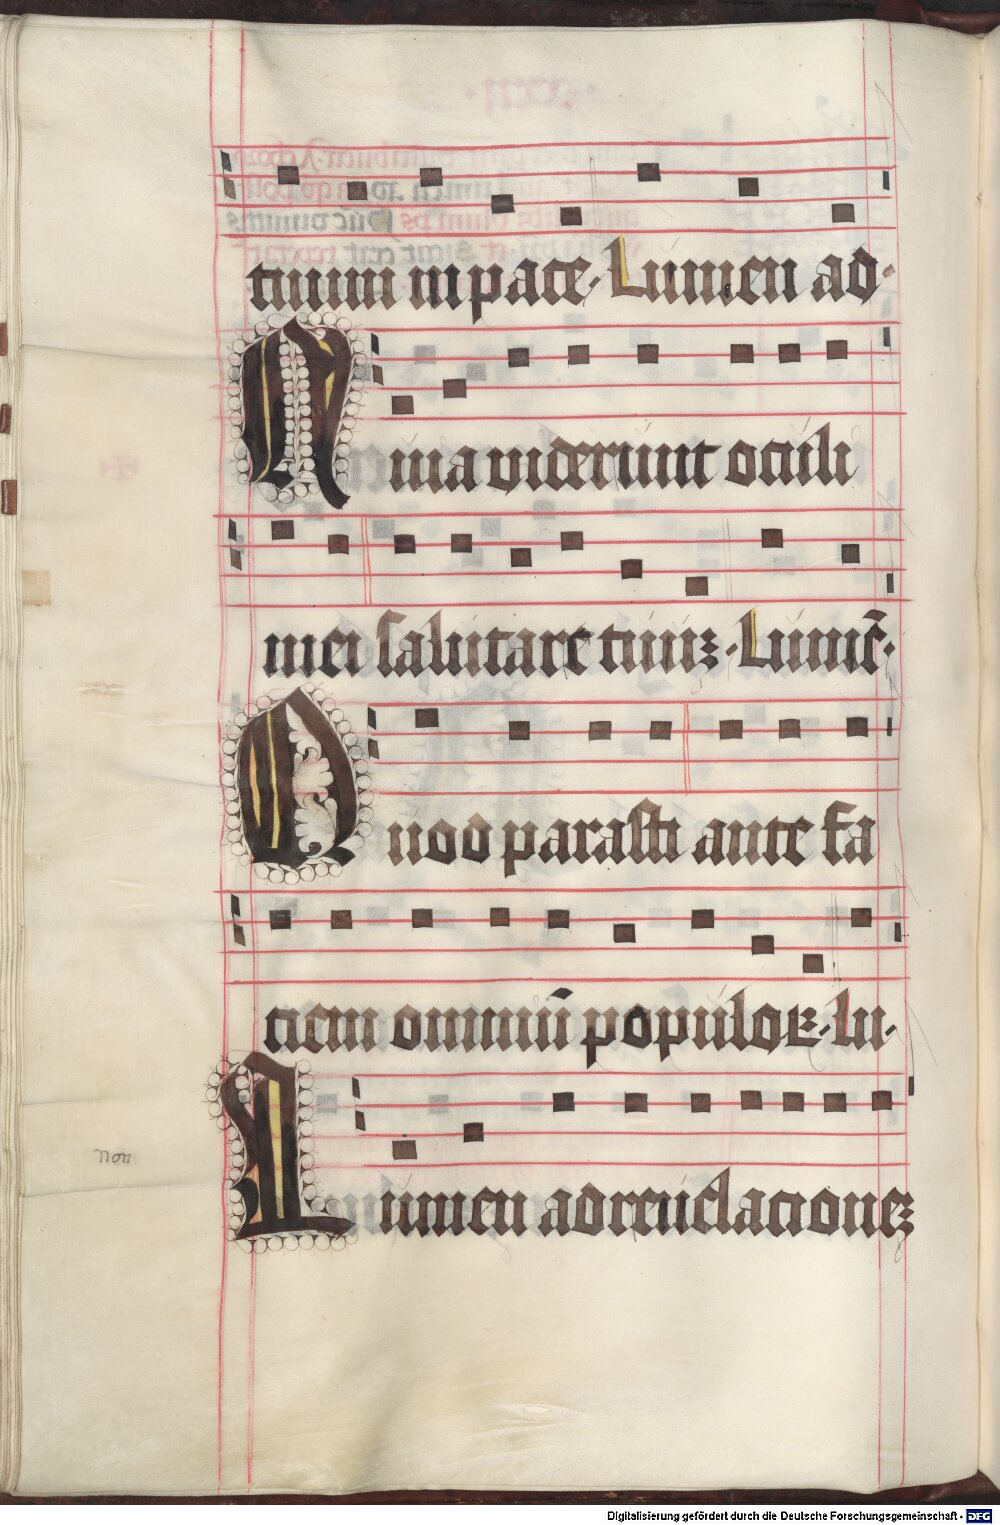 tuum in pace· Lumen ad·
Quia viderunt oculi
mei salutare tuuꝫ· Lumē·
Quod parasti ante fa
ciem omniū populoꝝ· lu·
non
Lumen ad reuelacioneꝫ
Digitalisierung gefördert durch die Deutsche Forschungsgemeinschaft - DFG